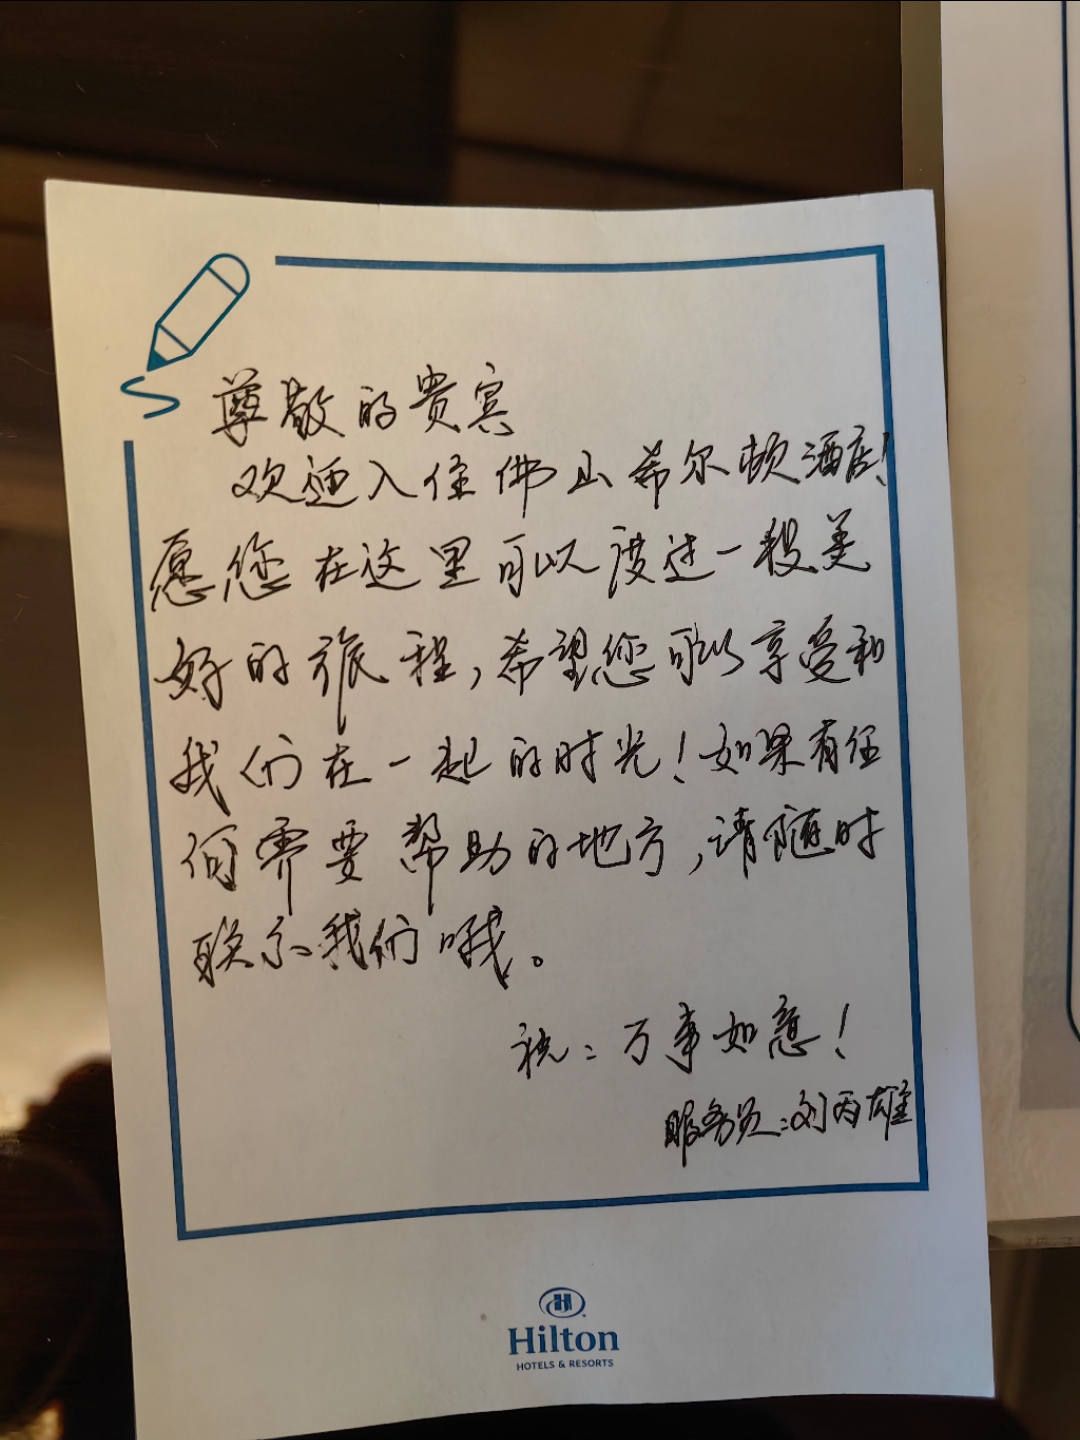 尊敬的贵宾
欢迎入住佛山希尔顿酒店!
愿您在这里可以度过一段美
好的旅程,希望您可以享受和
我们在一起的时光!如果有任
何需要帮助的地方,请随时
联系我们哦。
祝:万事如意!
服务员:刘丙雄
H
Hilton
HOTELS & RESORTS